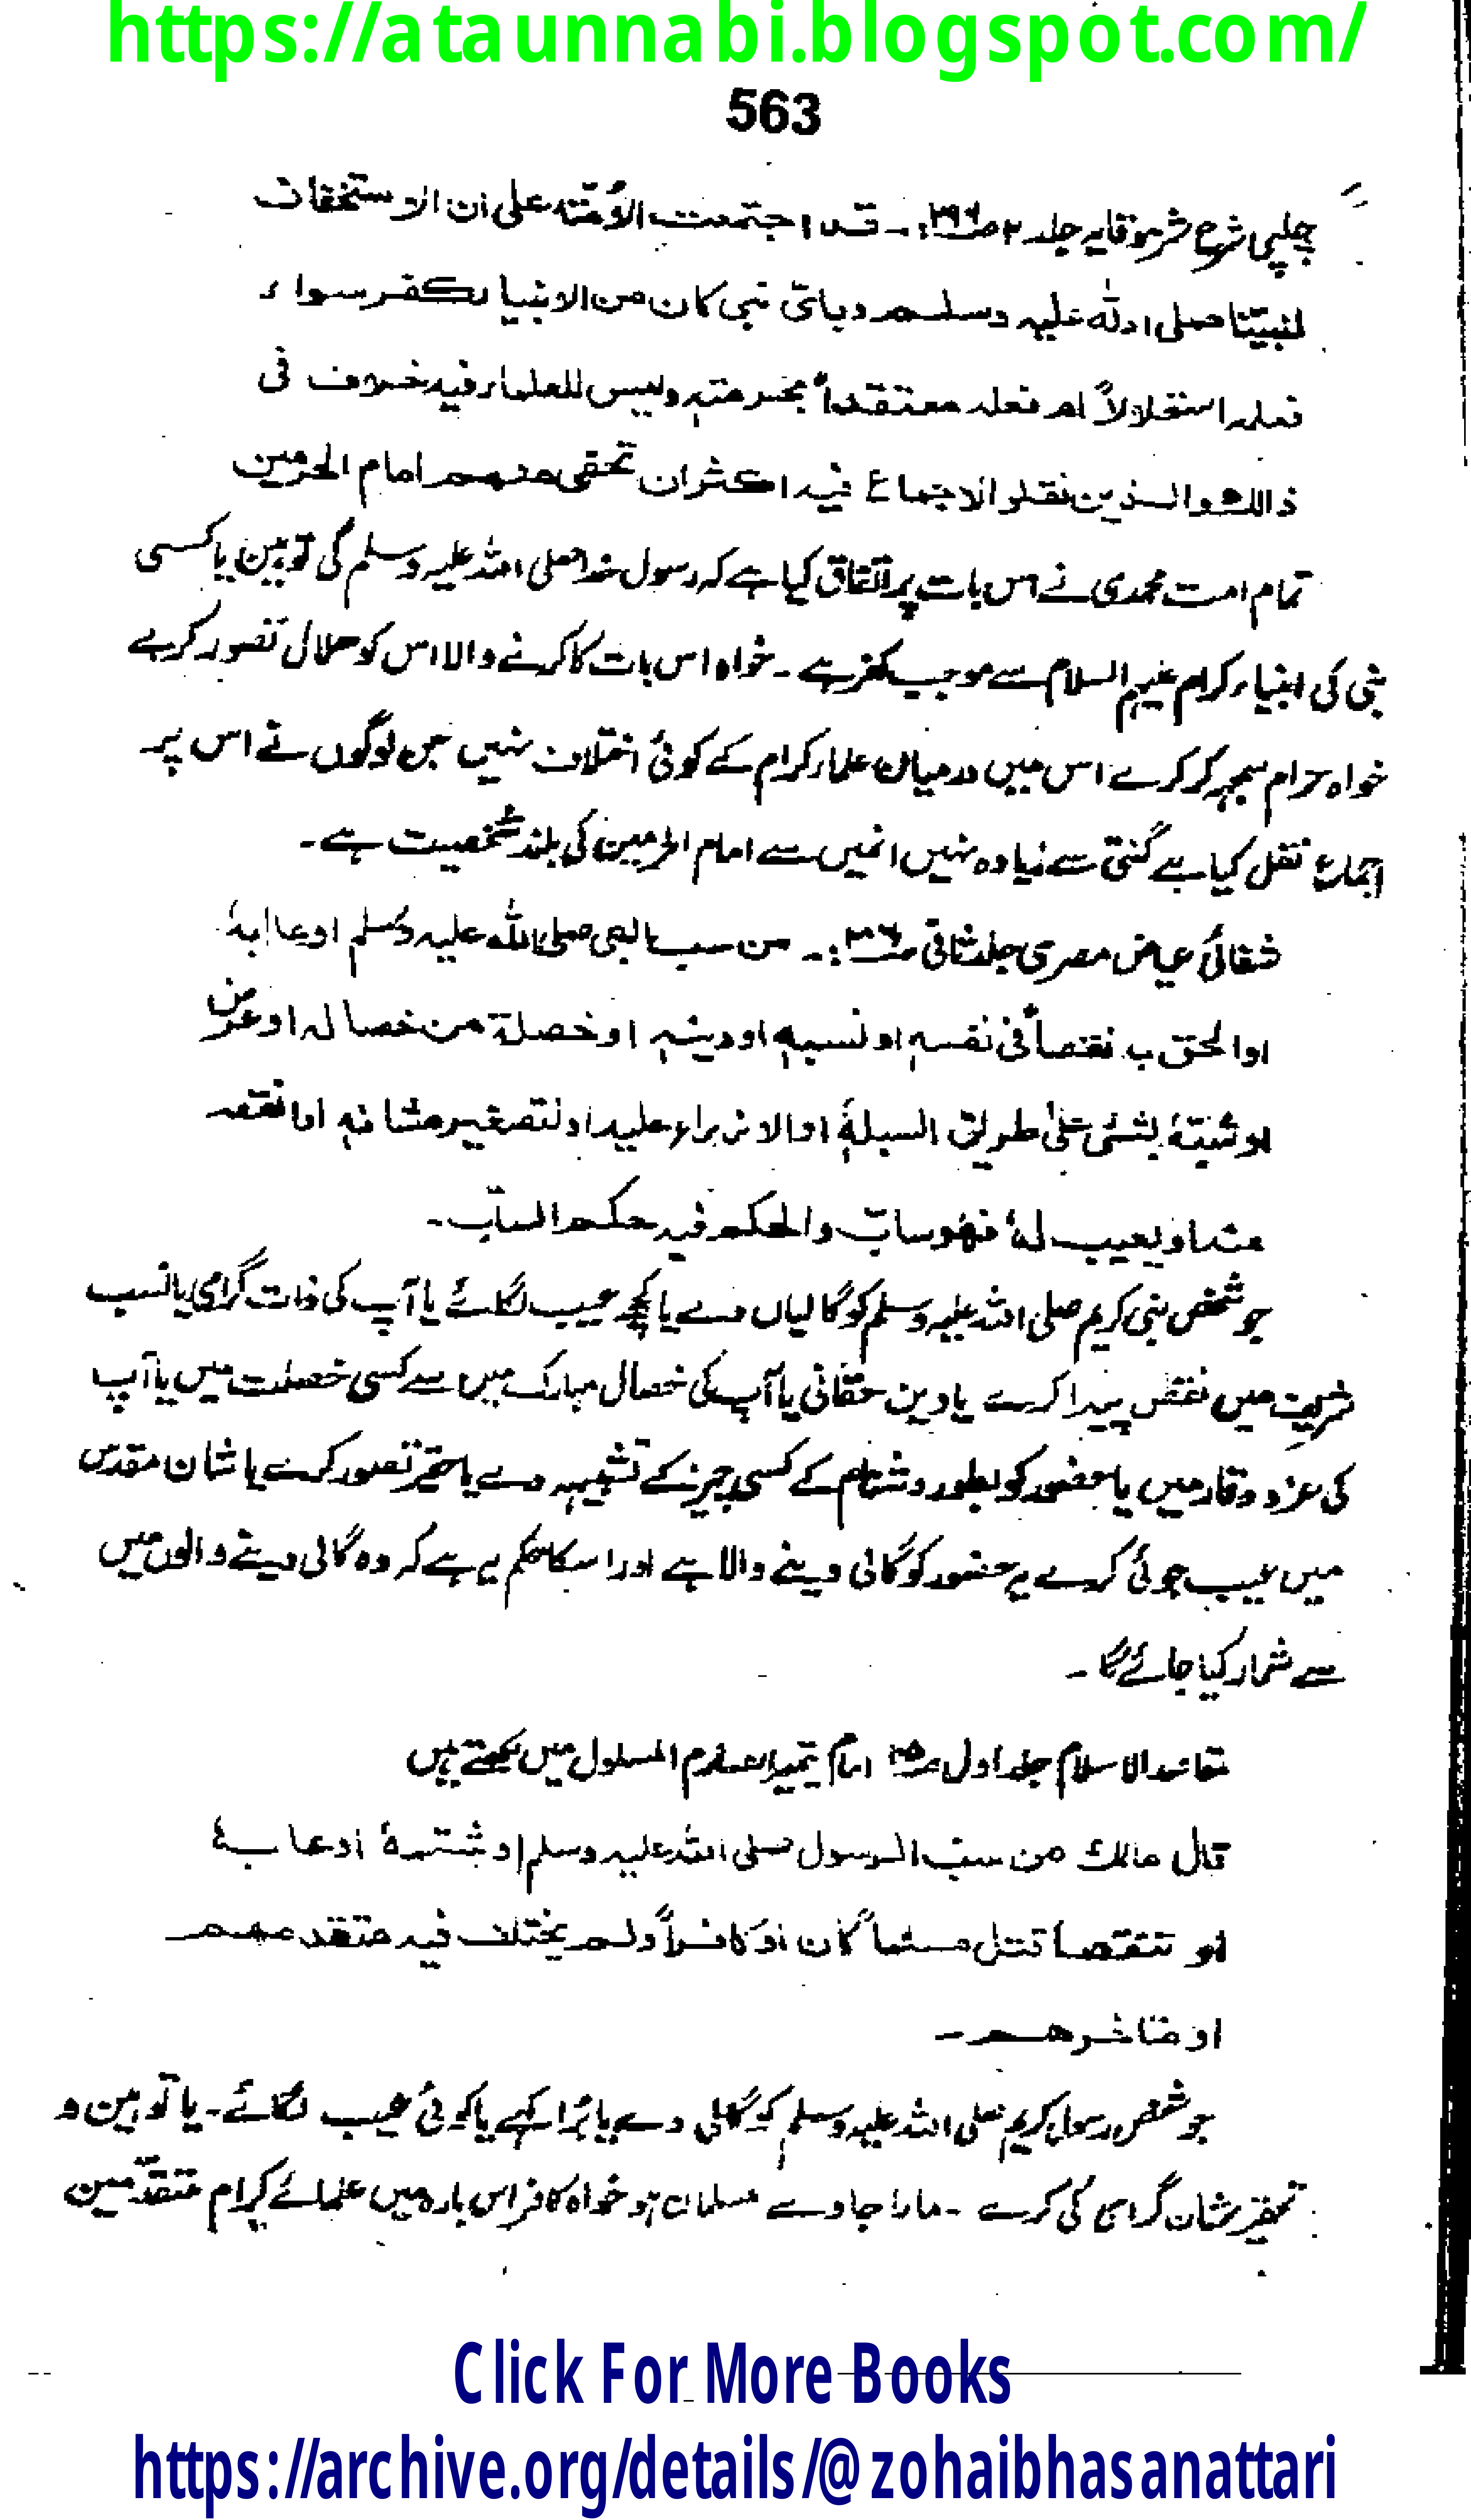 https://ataunnabi.blogspot.com/
563
چلپی شرح شرح وقایہ جلد ۲ :۔ قد اجتمعت الاُمّتہ علی ان الاستخفاف
لنبیّنا صلی اللہ علیہ وسلم وبایّ نبی کان من الانبیا لکفر سواء
فعلہ استحلالاً ام فعلہ معتقداً بحرمتہٖ ولیس للعلماء فیہ خلاف فی
ذالک والذین نقلو الاجماع فیہ اکثر ان تحقی منہم امام الحرمین
تمام امت محمدی نے اس بات پر اتفاق کیا ہے کہ رسول خدا صلی اللہ علیہ وسلم کی توہین یا کسی
نبی کی انبیاء کرام علیہم السلام سے موجب کفر ہے ۔ خواہ اس بات کا کرنے والا اس کو حلال تصور کرے
خواہ حرام سمجہہ کر کرے اس میں درمیان علماء کرام کے کوئی اختلاف نہیں جن لوگوں نے اس پر
اجماع نقل کیا ہے گنتی سے زیادہ نہیں انہیں سے امام الحرمین کی بلند شخصیت ہے ۔
شفائی عیاض مصری جلد ثانی :۔ من سب النبی صلی اللہ علیہ وسلم اوعابہٗ
اوالحق بہ نقصاً فی نفسہٖ او نسبہٖ او دینہٖ او خصلۃ من خصالہ او عرض
اوشبّتہٗ بشئی علیٰ طریق السبلہٖ اوالازراء علیہ او لتصغیر شانہٖ او
منہ او یعیب لہٗ فہو سابّ والحکم فیہ حکم السابّ۔
جو شخص نبی کریم صلی اللہ علیہ وسلم کو گالیاں دے یا کچھ عیب لگائے یا آپ کی ذات گرامی یا نسب
شریف میں نقص پیدا کرے یا دین حقانی یا آپ کی خصال مبارک میں سے کسی خصلت میں یا آپ
کی عزو وقار میں یا حضور کو بطور دشنام کے کسی چیز کے تشبیہہ دے یا حقیر تصور کرے یا شان مقدس
میں عیب جوئی کرے یہ حضور کو گالی دینے والا ہے اور اسکا حکم یہ ہے کہ وہ گالی دینے والوں میں
سے شمار کیا جائے گا ۔
عقائد الاسلام جلد اول امام تیمیہ الصارم المسلول میں لکھتے ہیں
قال مالک من سبّ الرسول صلی اللہ علیہ وسلم او شتمہٗ اوعابہٗ
او تنقصا قتل مسلماً کان او کافراً ولم یختلف فیہ متقدمہم
او متاخرھم ۔
جو شخص رسول کریم صلی اللہ علیہ وسلم کو گالی دے یا بُرا کہے یا کوئی عیب لگائے ۔ یا توہین و
تحقیر شان گرامی کی کرے ۔ مارا جاوے مسلمان ہو خواہ کافر اس بارہ میں علمائے کرام متقدّمین
Click For More Books
https://archive.org/details/@zohaibhasanattari